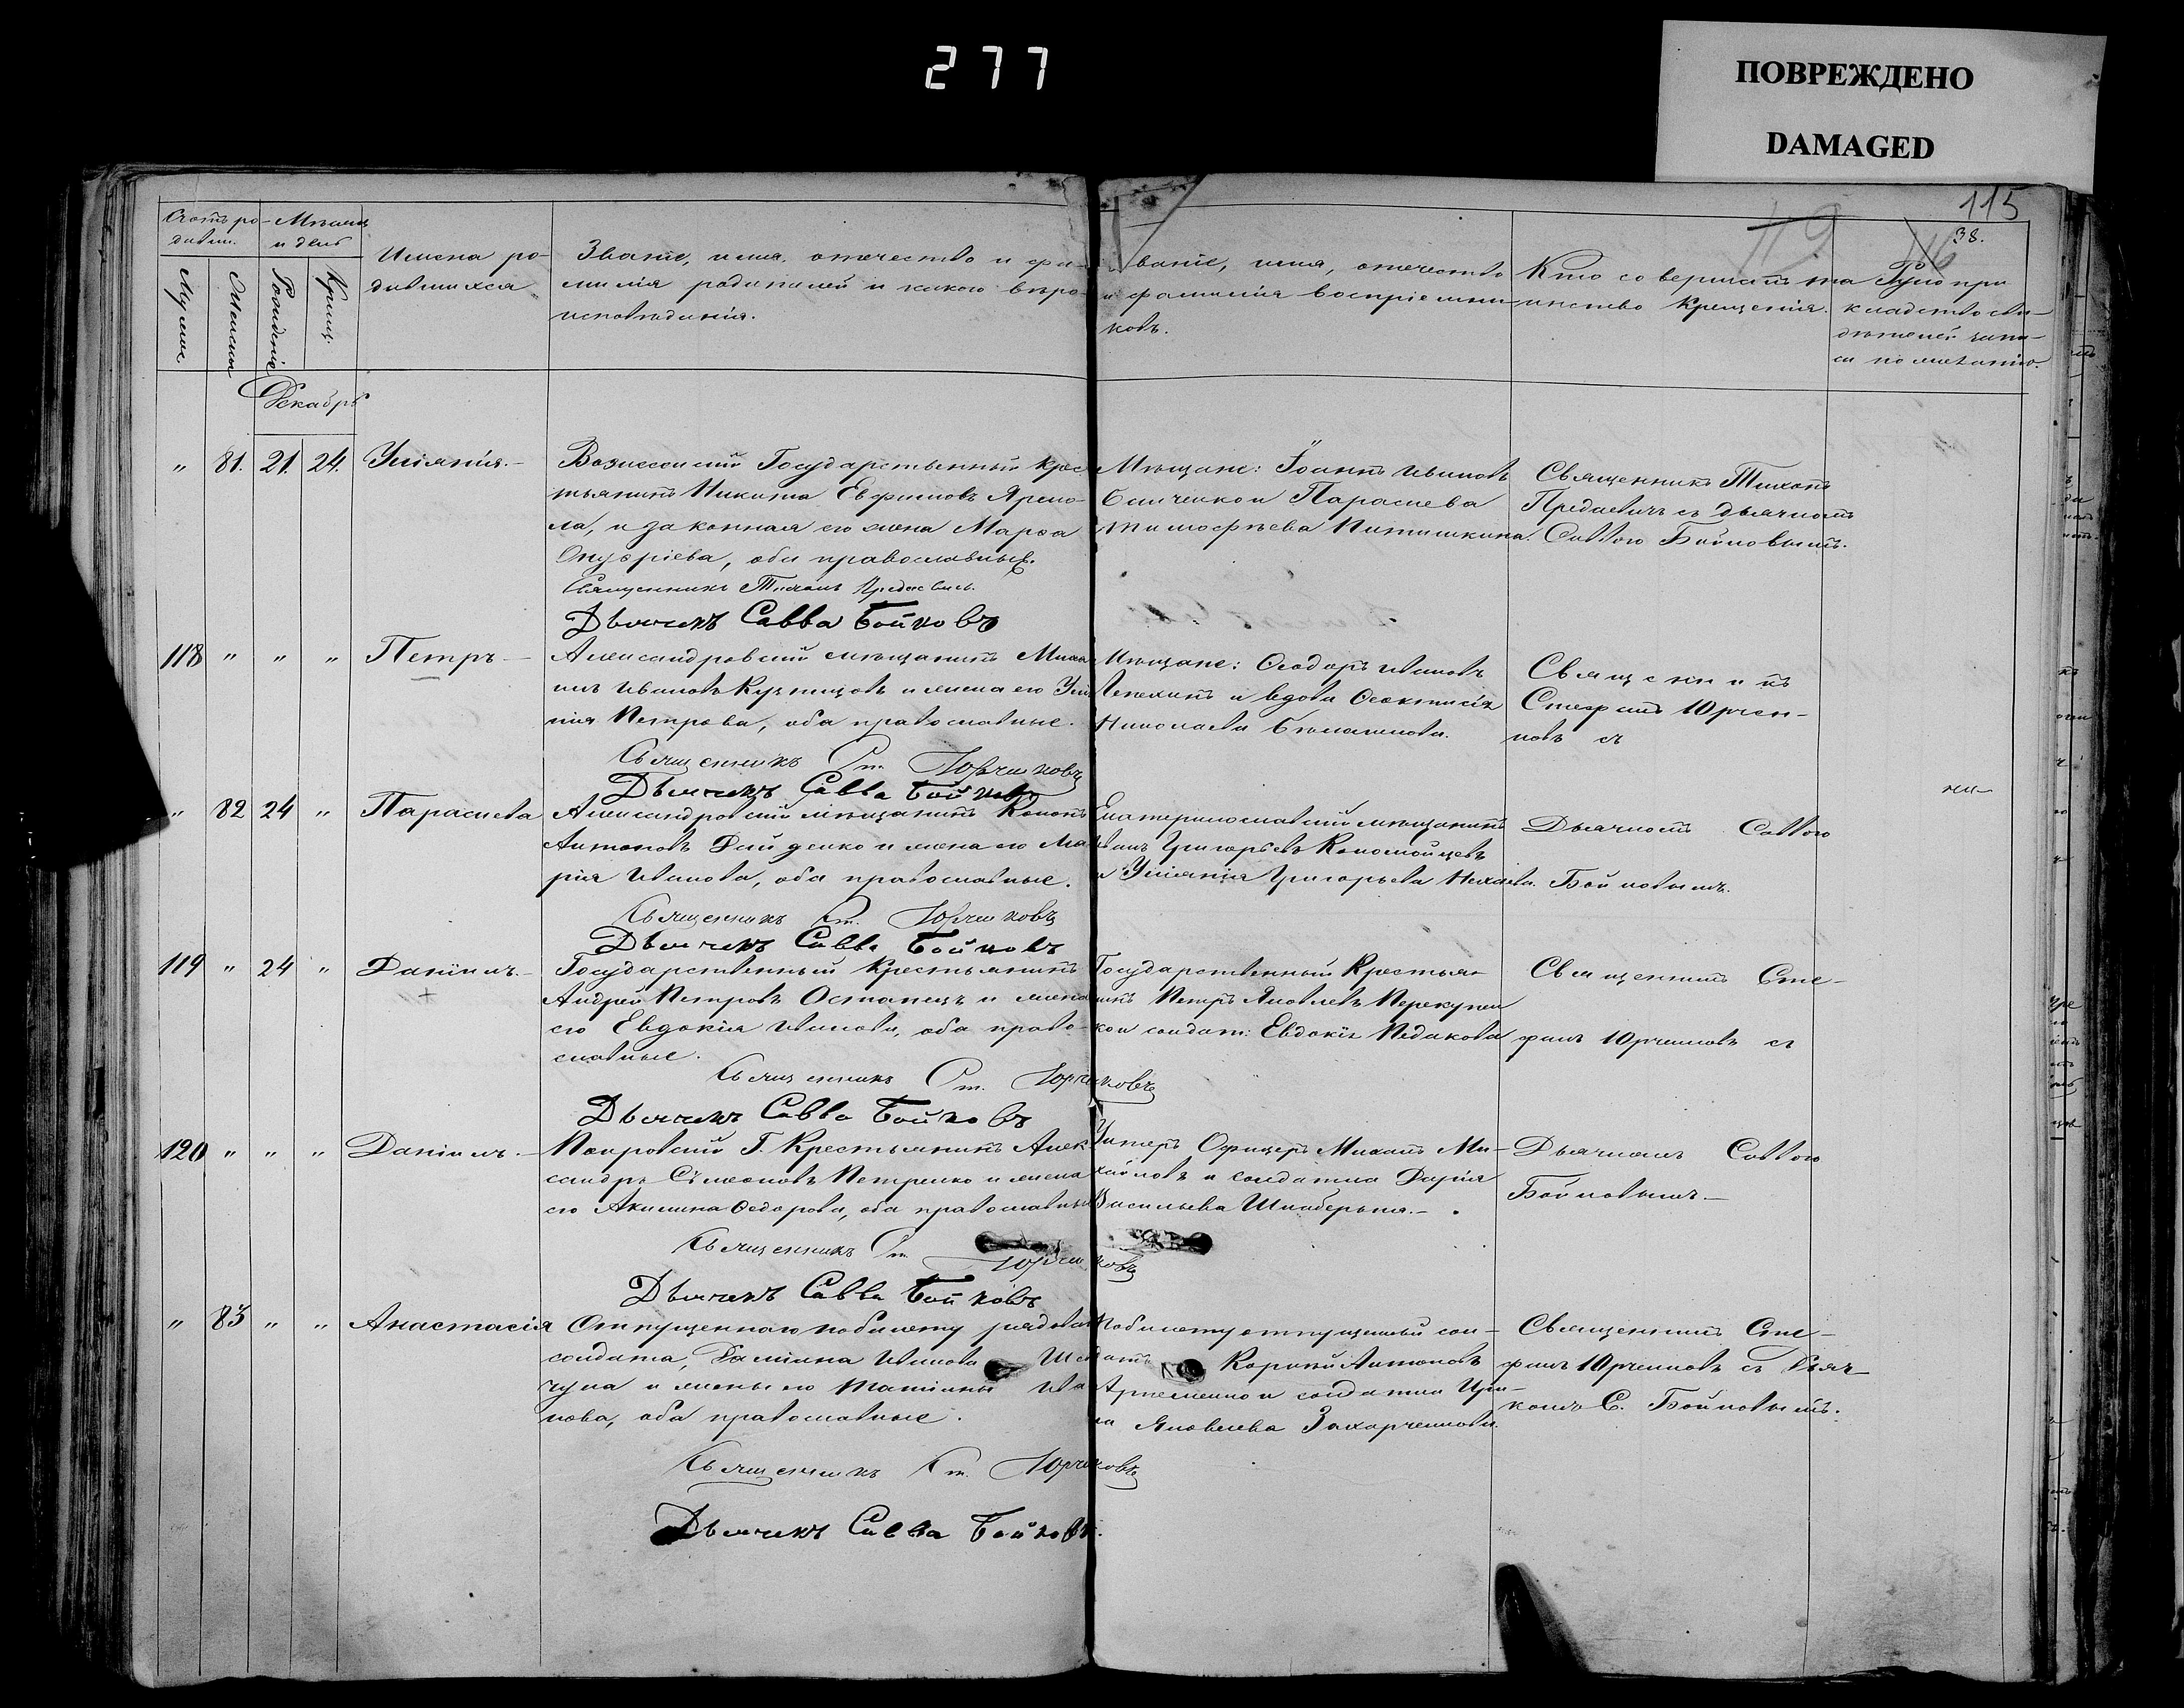 277
ПОВРЕЖДЕНО
DAMAGED
115
119
116
38.
Счетъ ро-
дивш.
Мѣсяцъ
и день
Мужеска
Женска
Рожденія
Крещ.
Имена ро-
дившихся
Званіе, имя, отечество и фа-
милія родителей и какого вѣро-
исповѣданія.
Званіе, имя, отечество
и фамилія воспріемни-
ковъ.
Кто совершалъ та
инство крещенія.
Руко при
кладство сви-
дѣтелей запи-
си по желанію.
Декабрь
" 81. 21. 24. Уліянія.-
Вознесенскій Государственный крес
тьянинъ Никита Евфимовъ Ярмо-
ла, и законная его жена Марѳа
Онуфріева, оба православные.
Священникъ Тихонъ Предаевичъ.
Дьячекъ Савва Бойковъ
Мѣщане: Іоаннъ Ивановъ
и Параскева
Тимофѣева
Священникъ Тихонъ
Предаевичъ съ дьячкомъ
Саввою Бойковымъ.
118 " " " Петръ-
Александровскій мѣщанинъ Миха
илъ Ивановъ Кузнецовъ и жена его Улія
нія Петрова, оба православные.
Священникъ Ст. Юрченковъ
Дьячекъ Савва Бойковъ
Мѣщане: Ѳеодоръ Ивановъ
Лепехинъ и вдова Ѳеоктисія
Николаева
Священникъ
Стефанъ Юрчен-
ковъ съ
" 82 24 " Параскева
Александровскій мѣщанинъ Кононъ
Антоновъ Дейденко и жена его Ма
рія Иванова, оба православные.
Священникъ Ст. Юрченковъ
Дьячекъ Савва Бойковъ
Екатеринославскій мѣщанинъ
Иванъ Григорьевъ Кономойцевъ
и Уліянія Григорьева Нехаева.
Дьячкомъ Саввою
Бойковымъ.
119 " 24 " Даніилъ.-
Государственный Крестьянинъ
Андрей Петровъ Остапецъ и жена
его Евдокія Иванова, оба право-
славные.
Священникъ Ст. Юрченковъ
Дьячекъ Савва Бойковъ
Государственный Крестья-
нинъ Петръ Яковлевъ
и солдат: Евдокія Педакова
Священникъ Сте-
фанъ Юрченковъ съ
120 " " " Даніилъ.-
Покровскій Г. Крестьянинъ Алек
сандръ Сѵмеоновъ Петренко и жена
его Акилина Ѳедорова, оба православные
Священникъ Ст. Юрченковъ
Дьячекъ Савва Бойковъ
Унтеръ Офицеръ Михаилъ Ми-
хайловъ и солдатка Дарія
Васильева
Дьячкомъ Саввою
Бойковымъ.-
" 83 " " Анастасія
Отпущеннаго по билету рядоваго
солдата, Галіина Иванова Шев
чука и жены его Татіаны Ива
нова, оба православные.
Священникъ Ст. Юрченковъ
Дьячекъ Савва Бойковъ.
По билету отпущенный сол-
датъ Корнилій Антоновъ
Артеменко и солдатка Ири-
на Яковлева Захарченкова.
Священникъ Сте-
фанъ Юрченковъ съ Дьяч-
комъ С. Бойковымъ.